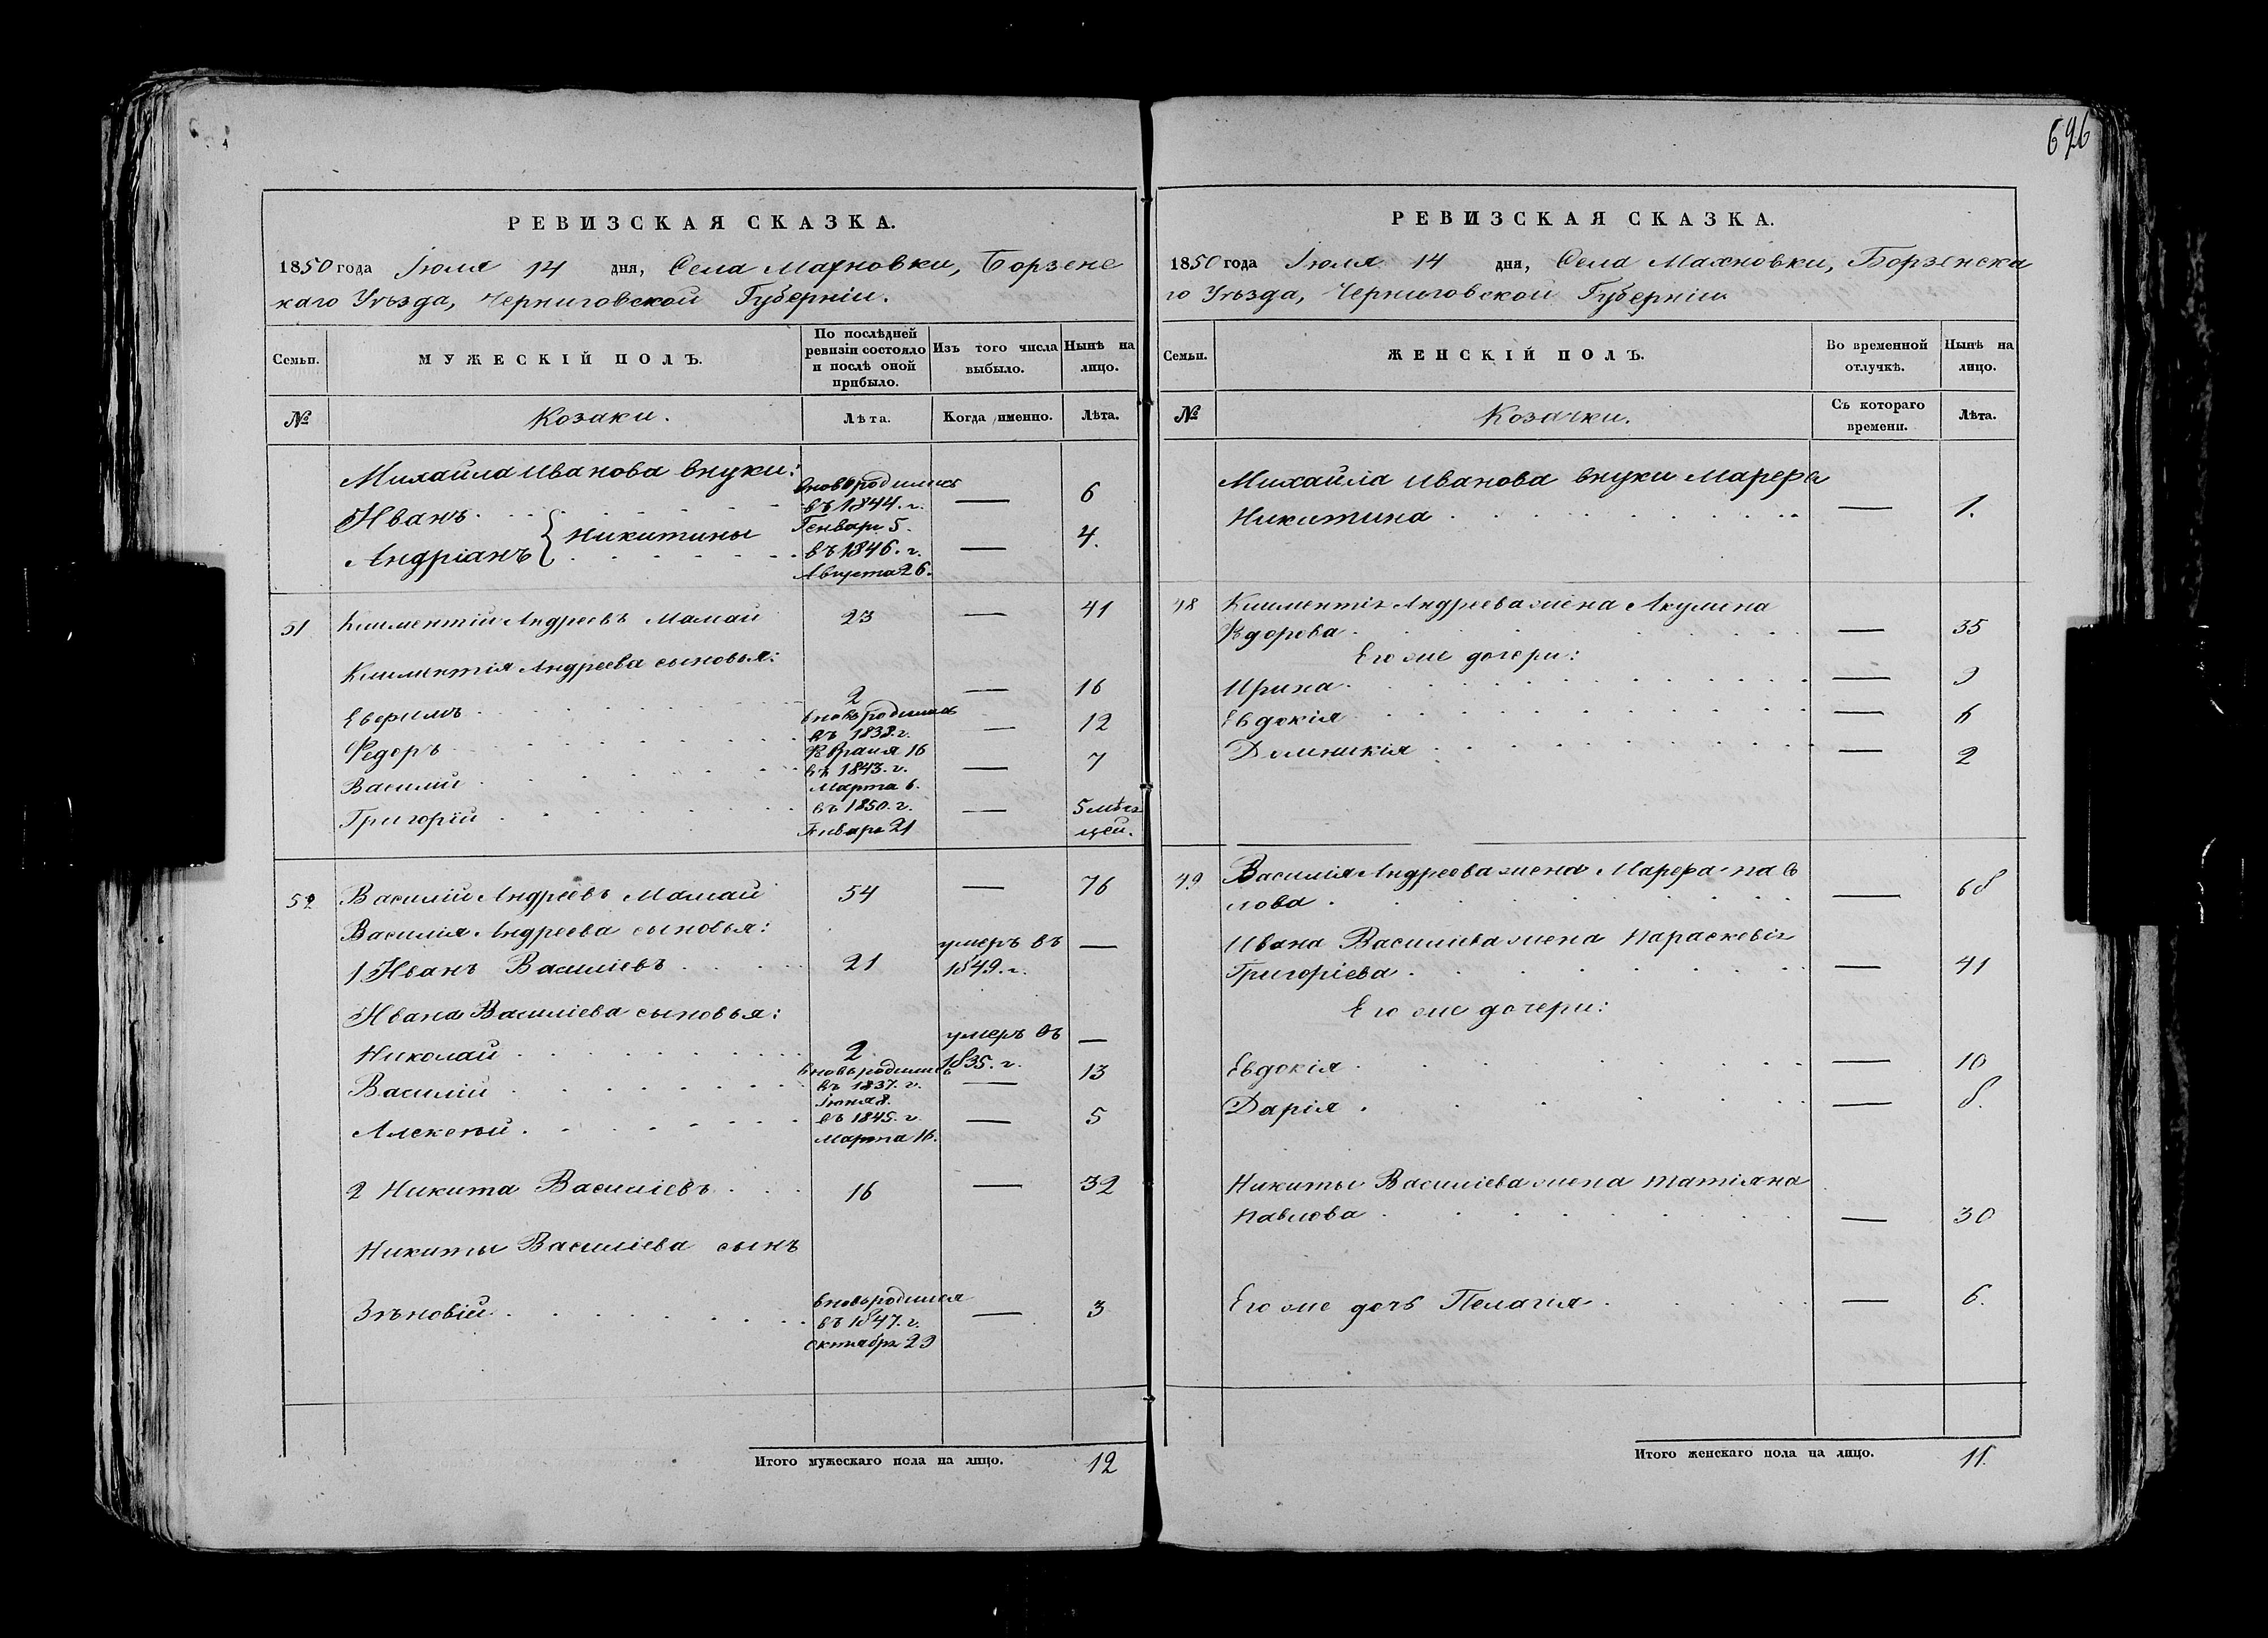 696
РЕВИЗСКАЯ СКАЗКА.
1850 года Іюля 14 дня, Села Махновки, Борзенс
каго Уѣзда, Черниговской Губерніи.
Семьи.
МУЖЕСКІЙ ПОЛЪ.
По послѣдней
ревизіи состояло
и послѣ оной
прибыло.
Изъ того числа
выбыло.
Нынѣ на
лицо.
№
Козаки.
Лѣта.
Когда именно.
Лѣта.
Михайла Иванова внуки:
Иванъ вновьродились въ 1844. г. Генваря 5. — 6
Андріанъ { Никитины въ 1846. г. Августа 26. — 4.
51 Климентій Андреевъ Мамай 23 — 41
Климентія Андреева сыновья:
Евфимъ 2 — 16
Федоръ вновьродились въ 1838. г. Февраля 16 — 12
Василій въ 1843. г. Марта 6. — 7
Григорій въ 1850. г. Январь 21 — 5 мѣся
цей.
52 Василій Андреевъ Мамай 54 — 76
Василія Андреева сыновья:
1 Иванъ Василіевъ 21 умеръ въ 1849. г. —
Ивана Василіева сыновья:
Николай 2 умеръ въ 1835. г. —
Василій вновьродились въ 1837. г. Іюня 8. — 13
Алексѣй въ 1845. г. Марта 16. — 5
2 Никита Василіевъ 16 — 32
Никиты Василіева сынъ
Зѣновій вновьродился въ 1847. г. октября 29 — 3
Итого мужескаго пола на лицо. 12
РЕВИЗСКАЯ СКАЗКА.
1850 года Іюля 14 дня, Села Махновки, Борзенска
го Уѣзда, Черниговской Губерніи
Семьи.
ЖЕНСКІЙ ПОЛЪ.
Во временной
отлучкѣ.
Нынѣ на
лицо.
№
Козачки.
Съ котораго
времени.
Лѣта.
Михайла Иванова внуки Марфа
Никитина — 1.
48 Климентія Андреева жена Акулина
Федорова — 35
Его же дочери:
Ирина — 9
Евдокія — 6
Домникія — 2
49 Василія Андреева жена Марфа Пав
лова — 68
Ивана Василіева жена Параскевія
Григоріева — 41
Его же дочери:
Евдокія — 10
Дарія — 8.
Никиты Василіева жена Татіяна
Павлова — 30
Его же дочь Пелагія — 6.
Итого женскаго пола на лицо. 11.